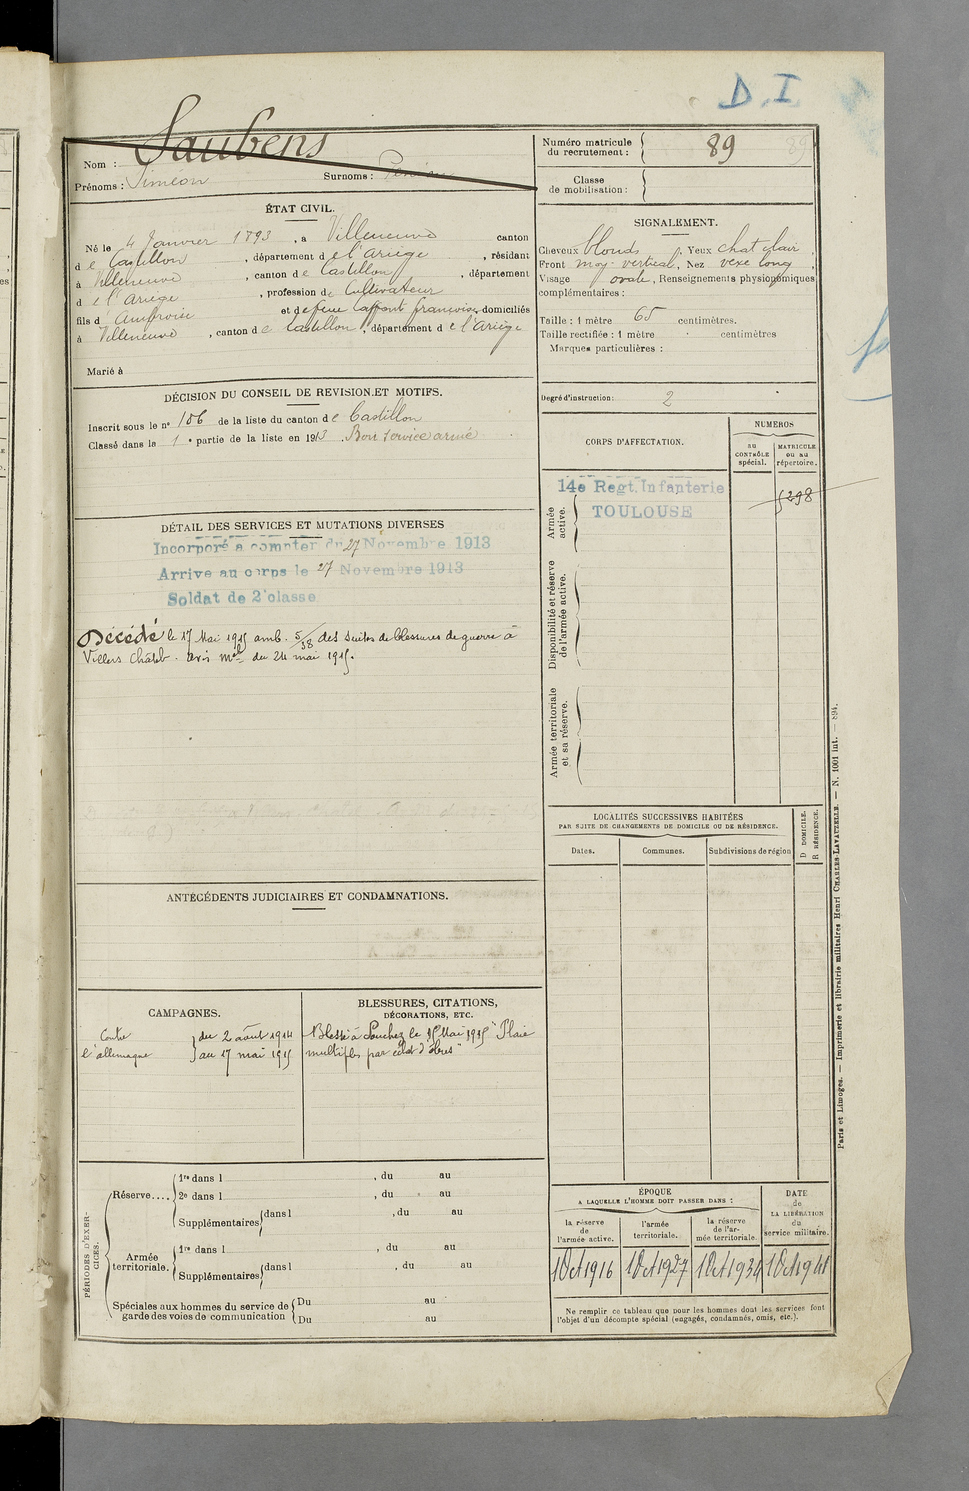 D.I
Saubens
Nom :
Prénoms : Siméon
Surnoms :
Numéro matricule
du recrutement : 89
89
Classe
de mobilisation :
ÉTAT CIVIL.
Né le 4 Janvier 1893, à Villeneuve canton
de Castillon, département de l'Ariège, résidant
à Villeneuve, canton de Castillon, département
de l'Ariège, profession de Cultivateur
fils d'Ambroise et de feue Laffont françoise, domiciliés
à Villeneuve, canton de Castillon, département de l'Ariège
Marié à
SIGNALEMENT.
Cheveux blonds, Yeux chat clair
Front moy. vertical, Nez vexe long,
Visage ovale, Renseignements physionomiques
complémentaires :
Taille : 1 mètre 65 centimètres.
Taille rectifiée : 1 mètre centimètres
Marques particulières :
Degré d'instruction : 2
DÉCISION DU CONSEIL DE REVISION ET MOTIFS.
Inscrit sous le n° 106 de la liste du canton de Castillon
Classé dans la 1e partie de la liste en 1913 Bon service armé
DÉTAIL DES SERVICES ET MUTATIONS DIVERSES
Incorporé à compter du 27 Novembre 1913
Arrivé au corps le 27 Novembre 1913
Soldat de 2e classe
Décédé le 17 Mai 1915 amb. 5/38 des suites de blessures de guerre à
Villers Châtel. Avis mel du 24 mai 1915.
CORPS D'AFFECTATION.
NUMÉROS
au
CONTRÔLE
spécial.
MATRICULE
ou au
répertoire.
14e Regt. Infanterie
TOULOUSE
5298
Armée
active.
Disponibilité et réserve
de l'armée active.
Armée territoriale
et sa réserve.
LOCALITÉS SUCCESSIVES HABITÉES
PAR SUITE DE CHANGEMENTS DE DOMICILE OU DE RÉSIDENCE.
D DOMICILE.
R RÉSIDENCE.
Dates.
Communes.
Subdivisions de région
ANTÉCÉDENTS JUDICIAIRES ET CONDAMNATIONS.
CAMPAGNES.
Contre
l'allemagne
du 2 août 1914
au 17 mai 1915
BLESSURES, CITATIONS,
DÉCORATIONS, ETC.
Blessé à Souchez le 15 Mai 1915 "Plaie
multiples par éclat d'obus"
PÉRIODES D'EXERCICES.
Réserve....
1re dans l , du au
2e dans l , du au
Supplémentaires dans l , du au
Armée
territoriale.
1re dans l , du au
Supplémentaires dans l , du au
Spéciales aux hommes du service de
garde des voies de communication
Du au
Du au
ÉPOQUE
A LAQUELLE L'HOMME DOIT PASSER DANS :
la réserve
de
l'armée active.
l'armée
territoriale.
la réserve
de l'ar-
mée territoriale.
DATE
de
LA LIBÉRATION
du
service militaire.
1 Oct 1916
1 Oct 1927
1 Oct 1934
1 Oct 1941
Ne remplir ce tableau que pour les hommes dont les services font
l'objet d'un décompte spécial (engagés, condamnés, omis, etc.).
Paris et Limoges. — Imprimerie et librairie militaires Henri CHARLES-LAVAUZELLE. — N. 1001 int. — 894.